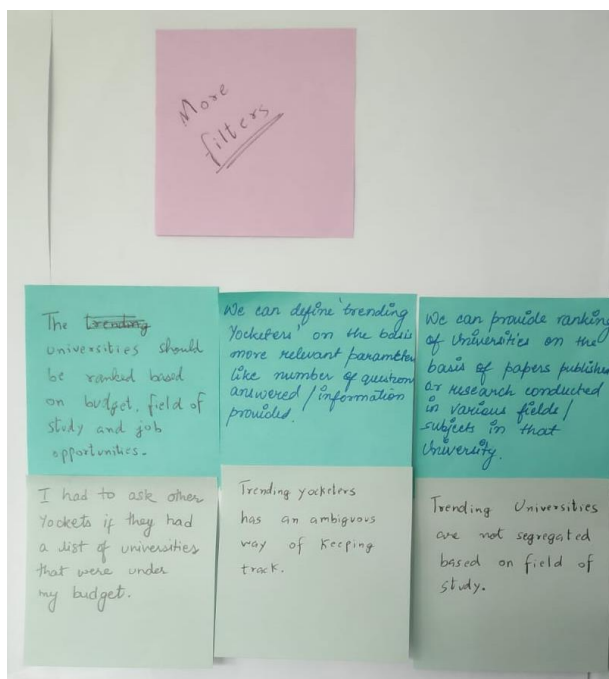 More
filters
The
universities should
be ranked based
on budget, field of
study and job
opportunities.
We can define 'trending
Yocketers' on the basis
more relevant parameter
like number of question
answered / information
provided.
We can provide ranking
of Universities on the
basis of papers publishe
or research conducted
in various fields /
subjects in that
University.
I had to ask other
Yockets if they had
a list of universities
that were under
my budget.
Trending yocketers
has an ambiguous
way of keeping
track.
Trending Universities
are not segregated
based on field of
study.